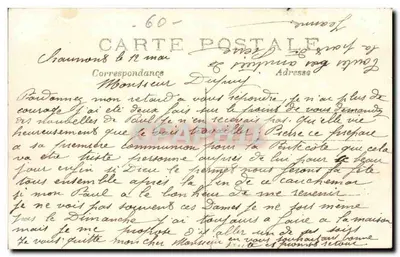 60-
Jeanne
CARTE POSTALE
Chaumont le 12 mai
Correspondance
Adresse
Monsieur Dupuis
Pardonnez mon retard a vous répondre je n'ai plus de
courage j'ai été deux fois sur le point de vous demander
des nouvelles de Paul je n'en recevais pas. Quelle vie
heureusement que je vais travailler Pierre se prépare
a sa première communion pour la Pentecôte que cela
va être triste personne auprès de lui pour ce beau
jour enfin si Dieu le permet nous ferons la fête
tous ensemble après la fin de ce cauchemar
si mon Paul a le bonheur de nous revenir
je ne vois pas souvent ces Dames je ne sors même
pas le Dimanche j'ai toujours a faire a la maison
mais je me propose d'y aller un de ces soirs
je vous quitte mon cher Monsieur en vous souhaitant bonne
santé et prompt retour